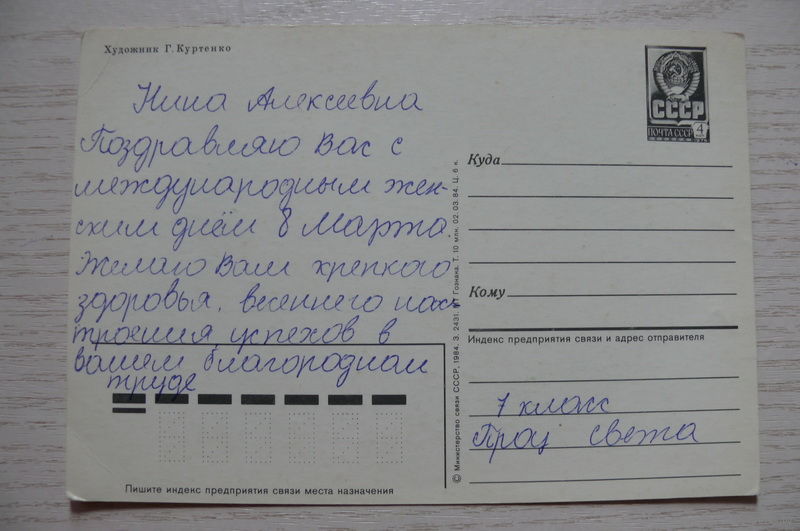 Художник Г. Куртенко
Нина Алексеевна
Поздравляю Вас с
международным жен-
ским днём 8 Марта.
Желаю Вам крепкого
здоровья, весеннего нас
троения, успехов в
вашем благородном
труде
СССР
ПОЧТА СССР 4
Куда
Кому
Индекс предприятия связи и адрес отправителя
7 класс
Проц Света
Пишите индекс предприятия связи места назначения
© Министерство связи СССР, 1984. З. 2431. Гознака. Т. 10 млн. 02.03.84. Ц. 6 к.